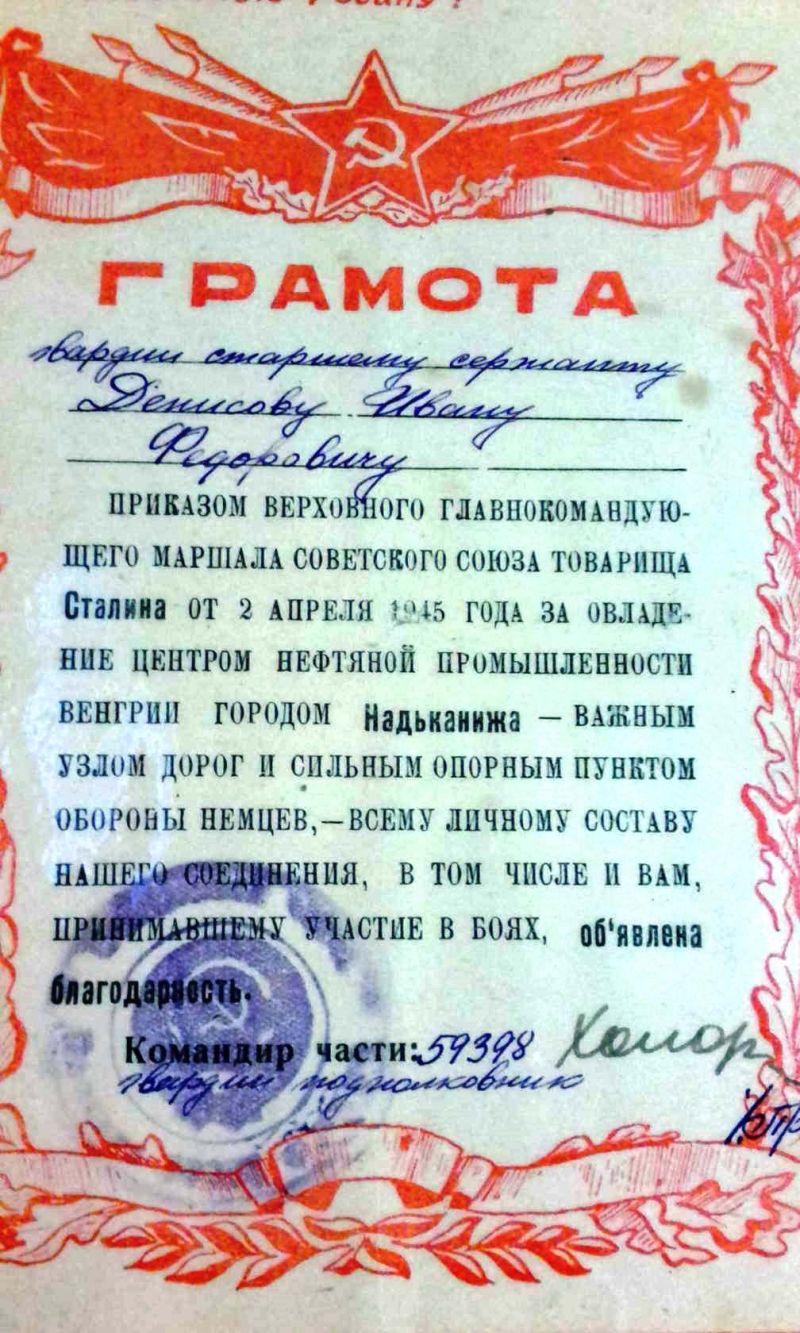 Родину!
ГРАМОТА
гвардии старшему сержанту
Денисову Ивану
Федоровичу
ПРИКАЗОМ ВЕРХОВНОГО ГЛАВНОКОМАНДУЮ-
ЩЕГО МАРШАЛА СОВЕТСКОГО СОЮЗА ТОВАРИЩА
Сталина ОТ 2 АПРЕЛЯ 1945 ГОДА ЗА ОВЛАДЕ-
НИЕ ЦЕНТРОМ НЕФТЯНОЙ ПРОМЫШЛЕННОСТИ
ВЕНГРИИ ГОРОДОМ Надьканижа — ВАЖНЫМ
УЗЛОМ ДОРОГ И СИЛЬНЫМ ОПОРНЫМ ПУНКТОМ
ОБОРОНЫ НЕМЦЕВ,—ВСЕМУ ЛИЧНОМУ СОСТАВУ
НАШЕГО СОЕДИНЕНИЯ, В ТОМ ЧИСЛЕ И ВАМ,
ПРИНИМАВШЕМУ УЧАСТИЕ В БОЯХ, об'явлена
благодарность.
Командир части: 59398
гвардии подполковник